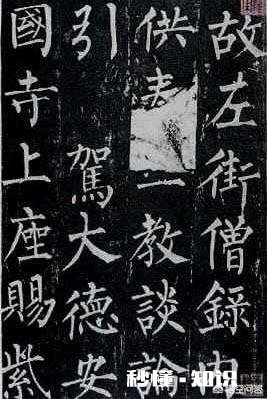 故左街僧錄内
供教談論
引駕大德安
國寺上座賜紫
秒懂·知识
悟空问答